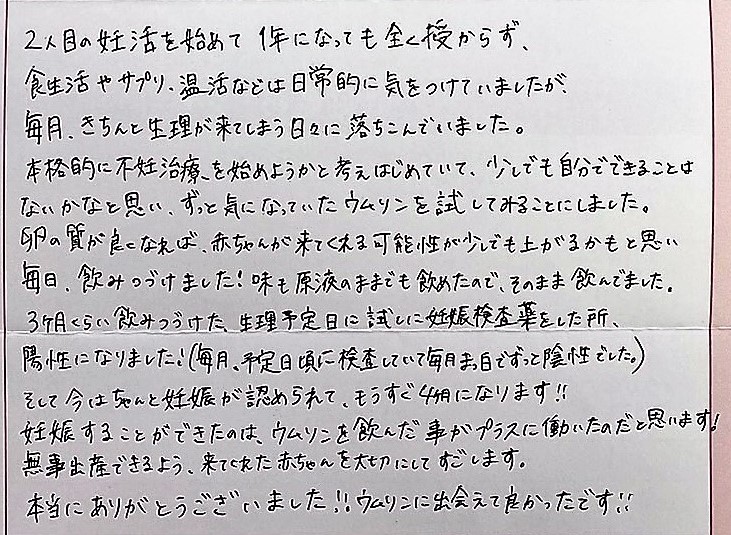 2人目の妊活を始めて 1年になっても全く授からず、
食生活やサプリ、温活などは日常的に気をつけていましたが、
毎月、きちんと生理が来てしまう日々に落ちこんでいました。
本格的に不妊治療を始めようかと考えはじめていて、少しでも自分でできることは
ないかなと思い、ずっと気になっていたウムリンを試してみることにしました。
卵の質が良くなれば、赤ちゃんが来てくれる可能性が少しでも上がるかもと思い
毎日、飲みつづけました!味も原液のままでも飲めたので、そのまま飲んでました。
3ヶ月くらい飲みつづけた、生理予定日に試しに妊娠検査薬をした所、
陽性になりました!(毎月、予定日頃に検査していて毎月まっ白でずっと陰性でした。)
そして今はちゃんと妊娠が認められて、もうすぐ4ヶ月になります!!
妊娠することができたのは、ウムリンを飲んだ事がプラスに働いたのだと思います!
無事出産できるよう、来てくれた赤ちゃんを大切にしてすごします。
本当にありがとうございました!!ウムリンに出会えて良かったです!!